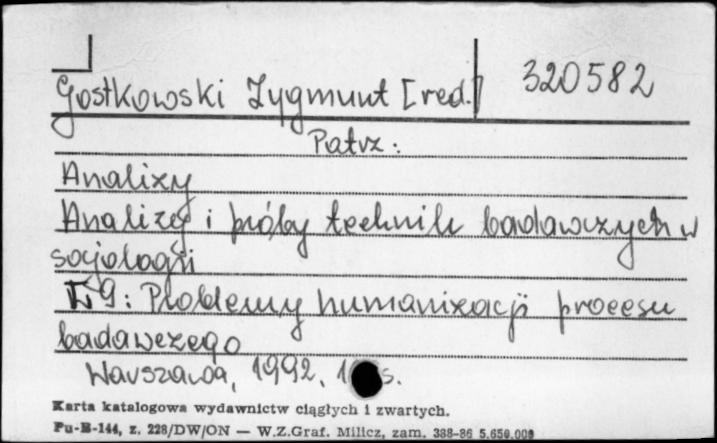 Gostkowski Zygmunt [red.] 320582
Patrz:
Analizy
Analizy i próby technik badawczych w
socjologii
T. 9: Problemy humanizacji procesu
badawczego
Warszawa, 1992. s.
Karta katalogowa wydawnictw ciągłych i zwartych.
Pu-B-144, z. 228/DW/ON — W.Z.Graf. Milicz, zam. 388-86 5.650.000